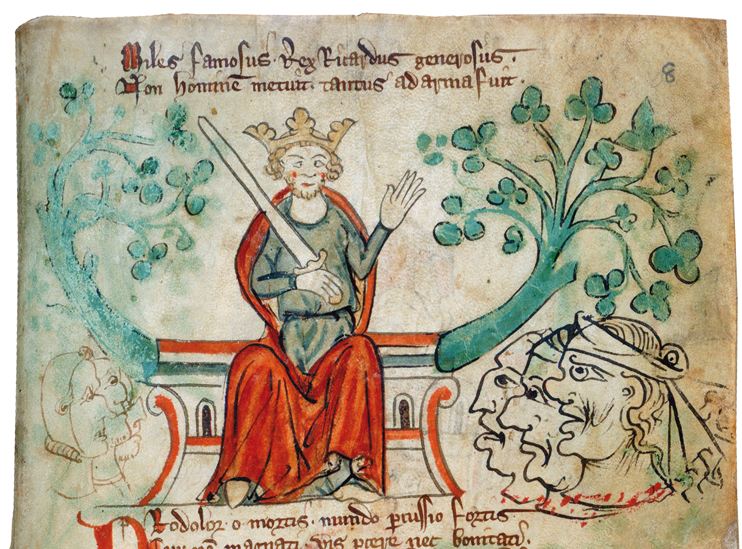 Miles famosus. Rex Ricardus generosus.
Non hominē metuit. tantus ad arma fuit.
8
Ro dolor. o mortis. mundo ꝑcussio fortis
magnati. vis ꝑcere nec bonitati.